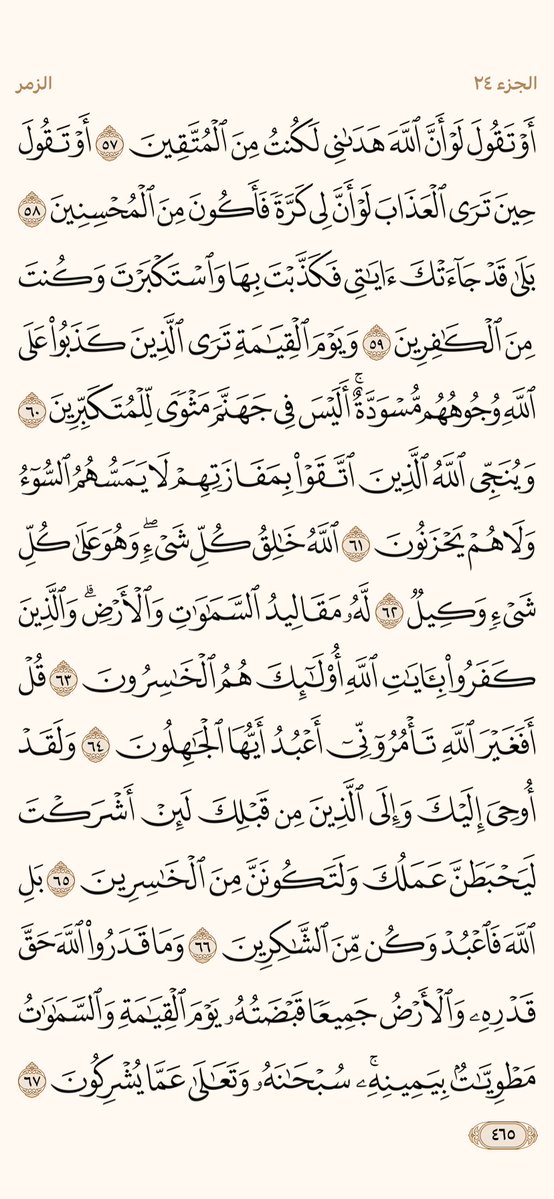 الجزء ٢٤
الزمر
أَوْ تَقُولَ لَوْ أَنَّ ٱللَّهَ هَدَىٰنِى لَكُنتُ مِنَ ٱلْمُتَّقِينَ ٥٧ أَوْ تَقُولَ
حِينَ تَرَى ٱلْعَذَابَ لَوْ أَنَّ لِى كَرَّةً فَأَكُونَ مِنَ ٱلْمُحْسِنِينَ ٥٨
بَلَىٰ قَدْ جَآءَتْكَ ءَايَٰتِى فَكَذَّبْتَ بِهَا وَٱسْتَكْبَرْتَ وَكُنتَ
مِنَ ٱلْكَٰفِرِينَ ٥٩ وَيَوْمَ ٱلْقِيَٰمَةِ تَرَى ٱلَّذِينَ كَذَبُوا۟ عَلَى
ٱللَّهِ وُجُوهُهُم مُّسْوَدَّةٌ ۚ أَلَيْسَ فِى جَهَنَّمَ مَثْوًى لِّلْمُتَكَبِّرِينَ ٦٠
وَيُنَجِّى ٱللَّهُ ٱلَّذِينَ ٱتَّقَوْا۟ بِمَفَازَتِهِمْ لَا يَمَسُّهُمُ ٱلسُّوٓءُ
وَلَا هُمْ يَحْزَنُونَ ٦١ ٱللَّهُ خَٰلِقُ كُلِّ شَىْءٍ ۖ وَهُوَ عَلَىٰ كُلِّ
شَىْءٍ وَكِيلٌ ٦٢ لَّهُۥ مَقَالِيدُ ٱلسَّمَٰوَٰتِ وَٱلْأَرْضِ ۗ وَٱلَّذِينَ
كَفَرُوا۟ بِـَٔايَٰتِ ٱللَّهِ أُو۟لَٰٓئِكَ هُمُ ٱلْخَٰسِرُونَ ٦٣ قُلْ
أَفَغَيْرَ ٱللَّهِ تَأْمُرُوٓنِّىٓ أَعْبُدُ أَيُّهَا ٱلْجَٰهِلُونَ ٦٤ وَلَقَدْ
أُوحِىَ إِلَيْكَ وَإِلَى ٱلَّذِينَ مِن قَبْلِكَ لَئِنْ أَشْرَكْتَ
لَيَحْبَطَنَّ عَمَلُكَ وَلَتَكُونَنَّ مِنَ ٱلْخَٰسِرِينَ ٦٥ بَلِ
ٱللَّهَ فَٱعْبُدْ وَكُن مِّنَ ٱلشَّٰكِرِينَ ٦٦ وَمَا قَدَرُوا۟ ٱللَّهَ حَقَّ
قَدْرِهِۦ وَٱلْأَرْضُ جَمِيعًا قَبْضَتُهُۥ يَوْمَ ٱلْقِيَٰمَةِ وَٱلسَّمَٰوَٰتُ
مَطْوِيَّٰتٌۢ بِيَمِينِهِۦ ۚ سُبْحَٰنَهُۥ وَتَعَٰلَىٰ عَمَّا يُشْرِكُونَ ٦٧
٤٦٥